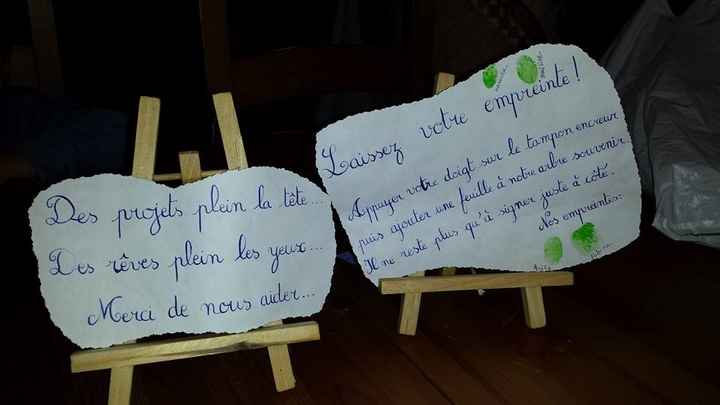 Des projets plein la tête...
Des rêves plein les yeux...
Merci de nous aider...
Laissez votre empreinte!
Appuyer votre doigt sur le tampon encreur
puis ajouter une feuille à notre arbre souvenir.
Il ne reste plus qu'à signer juste à côté.
Nos empruntes: